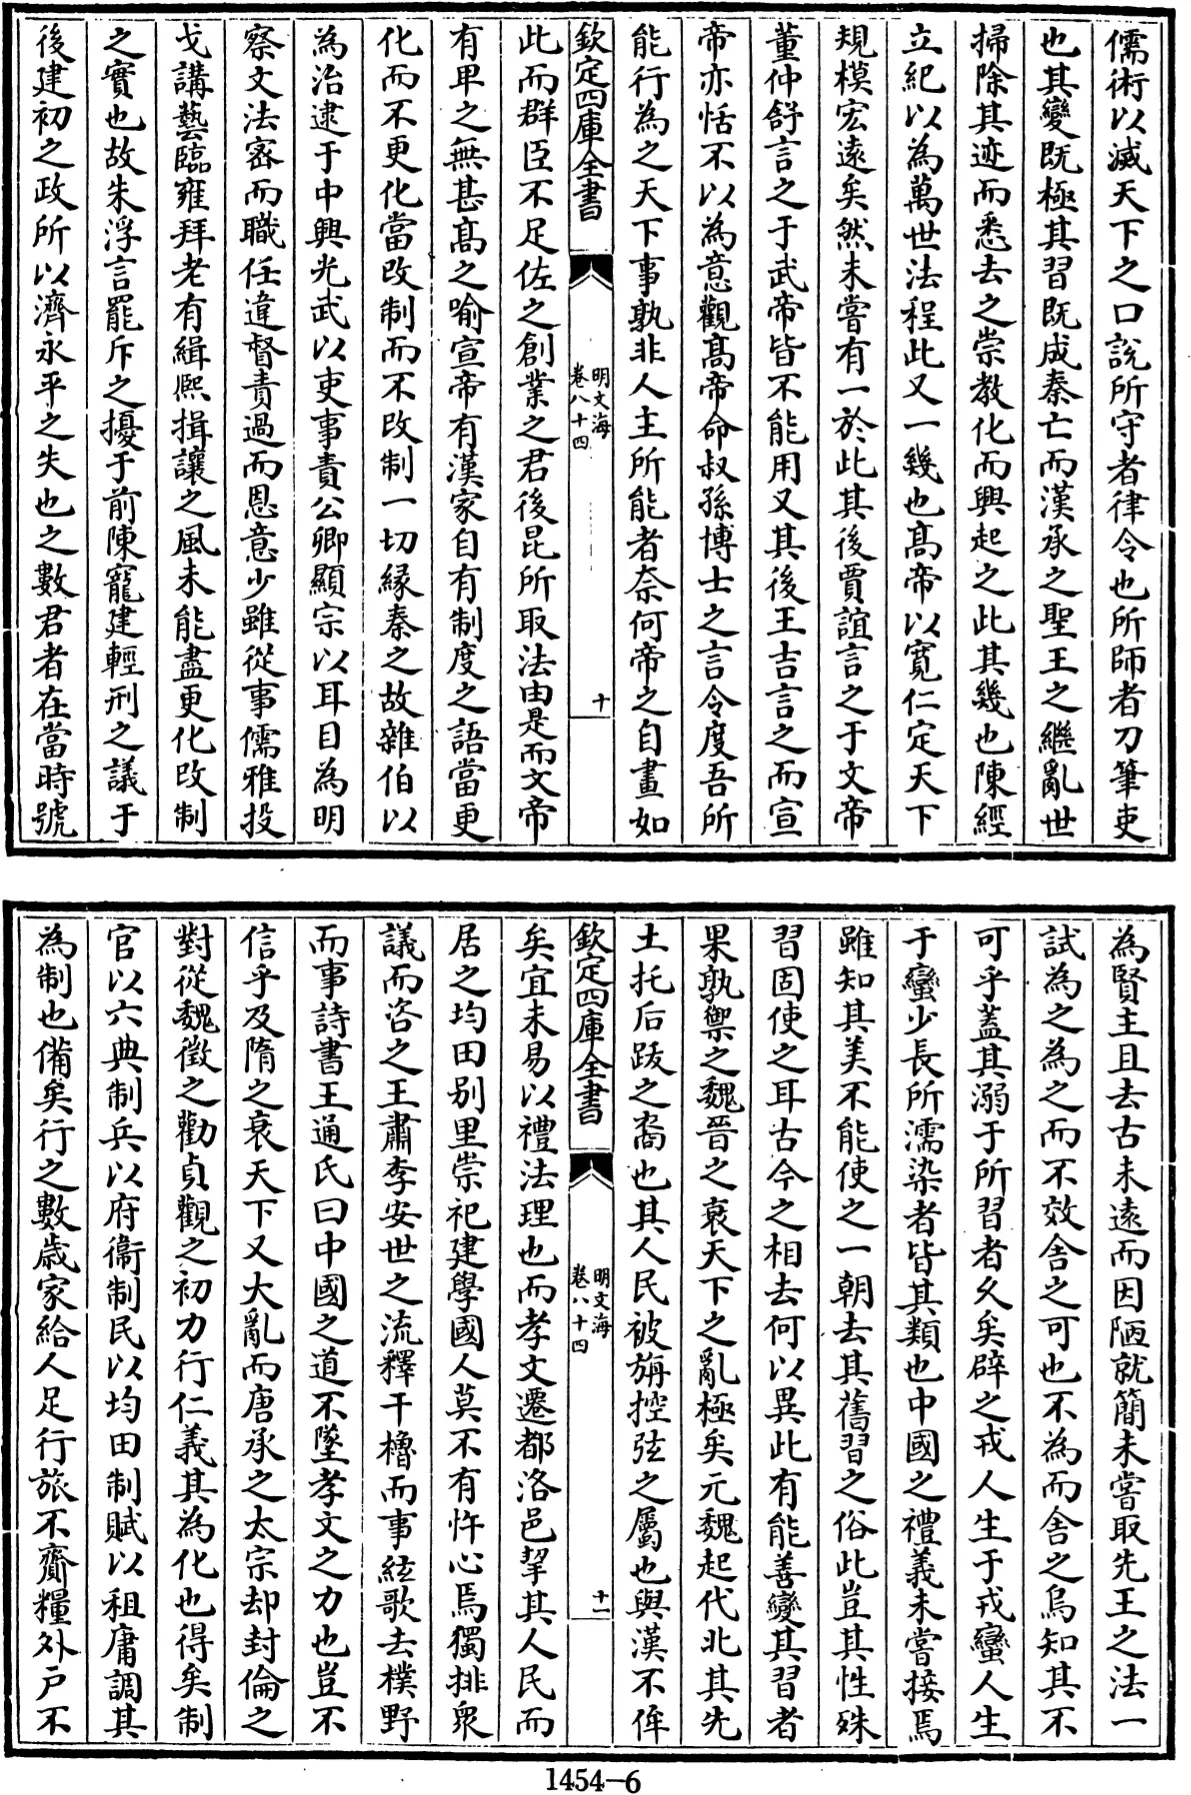 儒術以滅天下之口說所守者律令也所師者刀筆吏
也其變既極其習既成秦亡而漢承之聖王之繼亂世
掃除其迹而悉去之崇教化而興起之此其幾也陳經
立紀以為萬世法程此又一幾也髙帝以寛仁定天下
規模宏遠矣然未嘗有一於此其後賈誼言之于文帝
董仲舒言之于武帝皆不能用又其後王吉言之而宣
帝亦恬不以為意觀髙帝命叔孫博士之言令度吾所
能行為之天下事孰非人主所能者奈何帝之自畫如
欽定四庫全書
明文海
卷八十四
十
此而群臣不足佐之創業之君後昆所取法由是而文帝
有卑之無甚髙之喻宣帝有漢家自有制度之語當更
化而不更化當改制而不改制一切緣秦之故雜伯以
為治逮于中興光武以吏事責公卿顯宗以耳目為明
察文法宻而職任違督責過而恩意少雖從事儒雅投
戈講藝臨雍拜老有緝熙揖讓之風未能盡更化改制
之實也故朱浮言罷斥之擾于前陳寵建輕刑之議于
後建初之政所以濟永平之失也之數君者在當時號
為賢主且去古未遠而因陋就簡未嘗取先王之法一
試為之為之而不效舍之可也不為而舍之烏知其不
可乎蓋其溺于所習者久矣辟之戎人生于戎蠻人生
于蠻少長所濡染者皆其類也中國之禮義未嘗接焉
雖知其美不能使之一朝去其舊習之俗此豈其性殊
習固使之耳古今之相去何以異此有能善變其習者
果孰禦之魏晉之衰天下之亂極矣元魏起代北其先
土托后跋之裔也其人民被旃控弦之屬也與漢不侔
欽定四庫全書
明文海
卷八十四
十一
矣宜未易以禮法理也而孝文遷都洛邑挈其人民而
居之均田别里崇祀建學國人莫不有忤心焉獨排衆
議而咨之王肅李安世之流釋干櫓而事絃歌去樸野
而事詩書王通氏曰中國之道不墜孝文之力也豈不
信乎及隋之衰天下又大亂而唐承之太宗却封倫之
對從魏徵之勸貞觀之初力行仁義其為化也得矣制
官以六典制兵以府衞制民以均田制賦以租庸調其
為制也備矣行之數歲家給人足行旅不齎糧外户不
1454-6